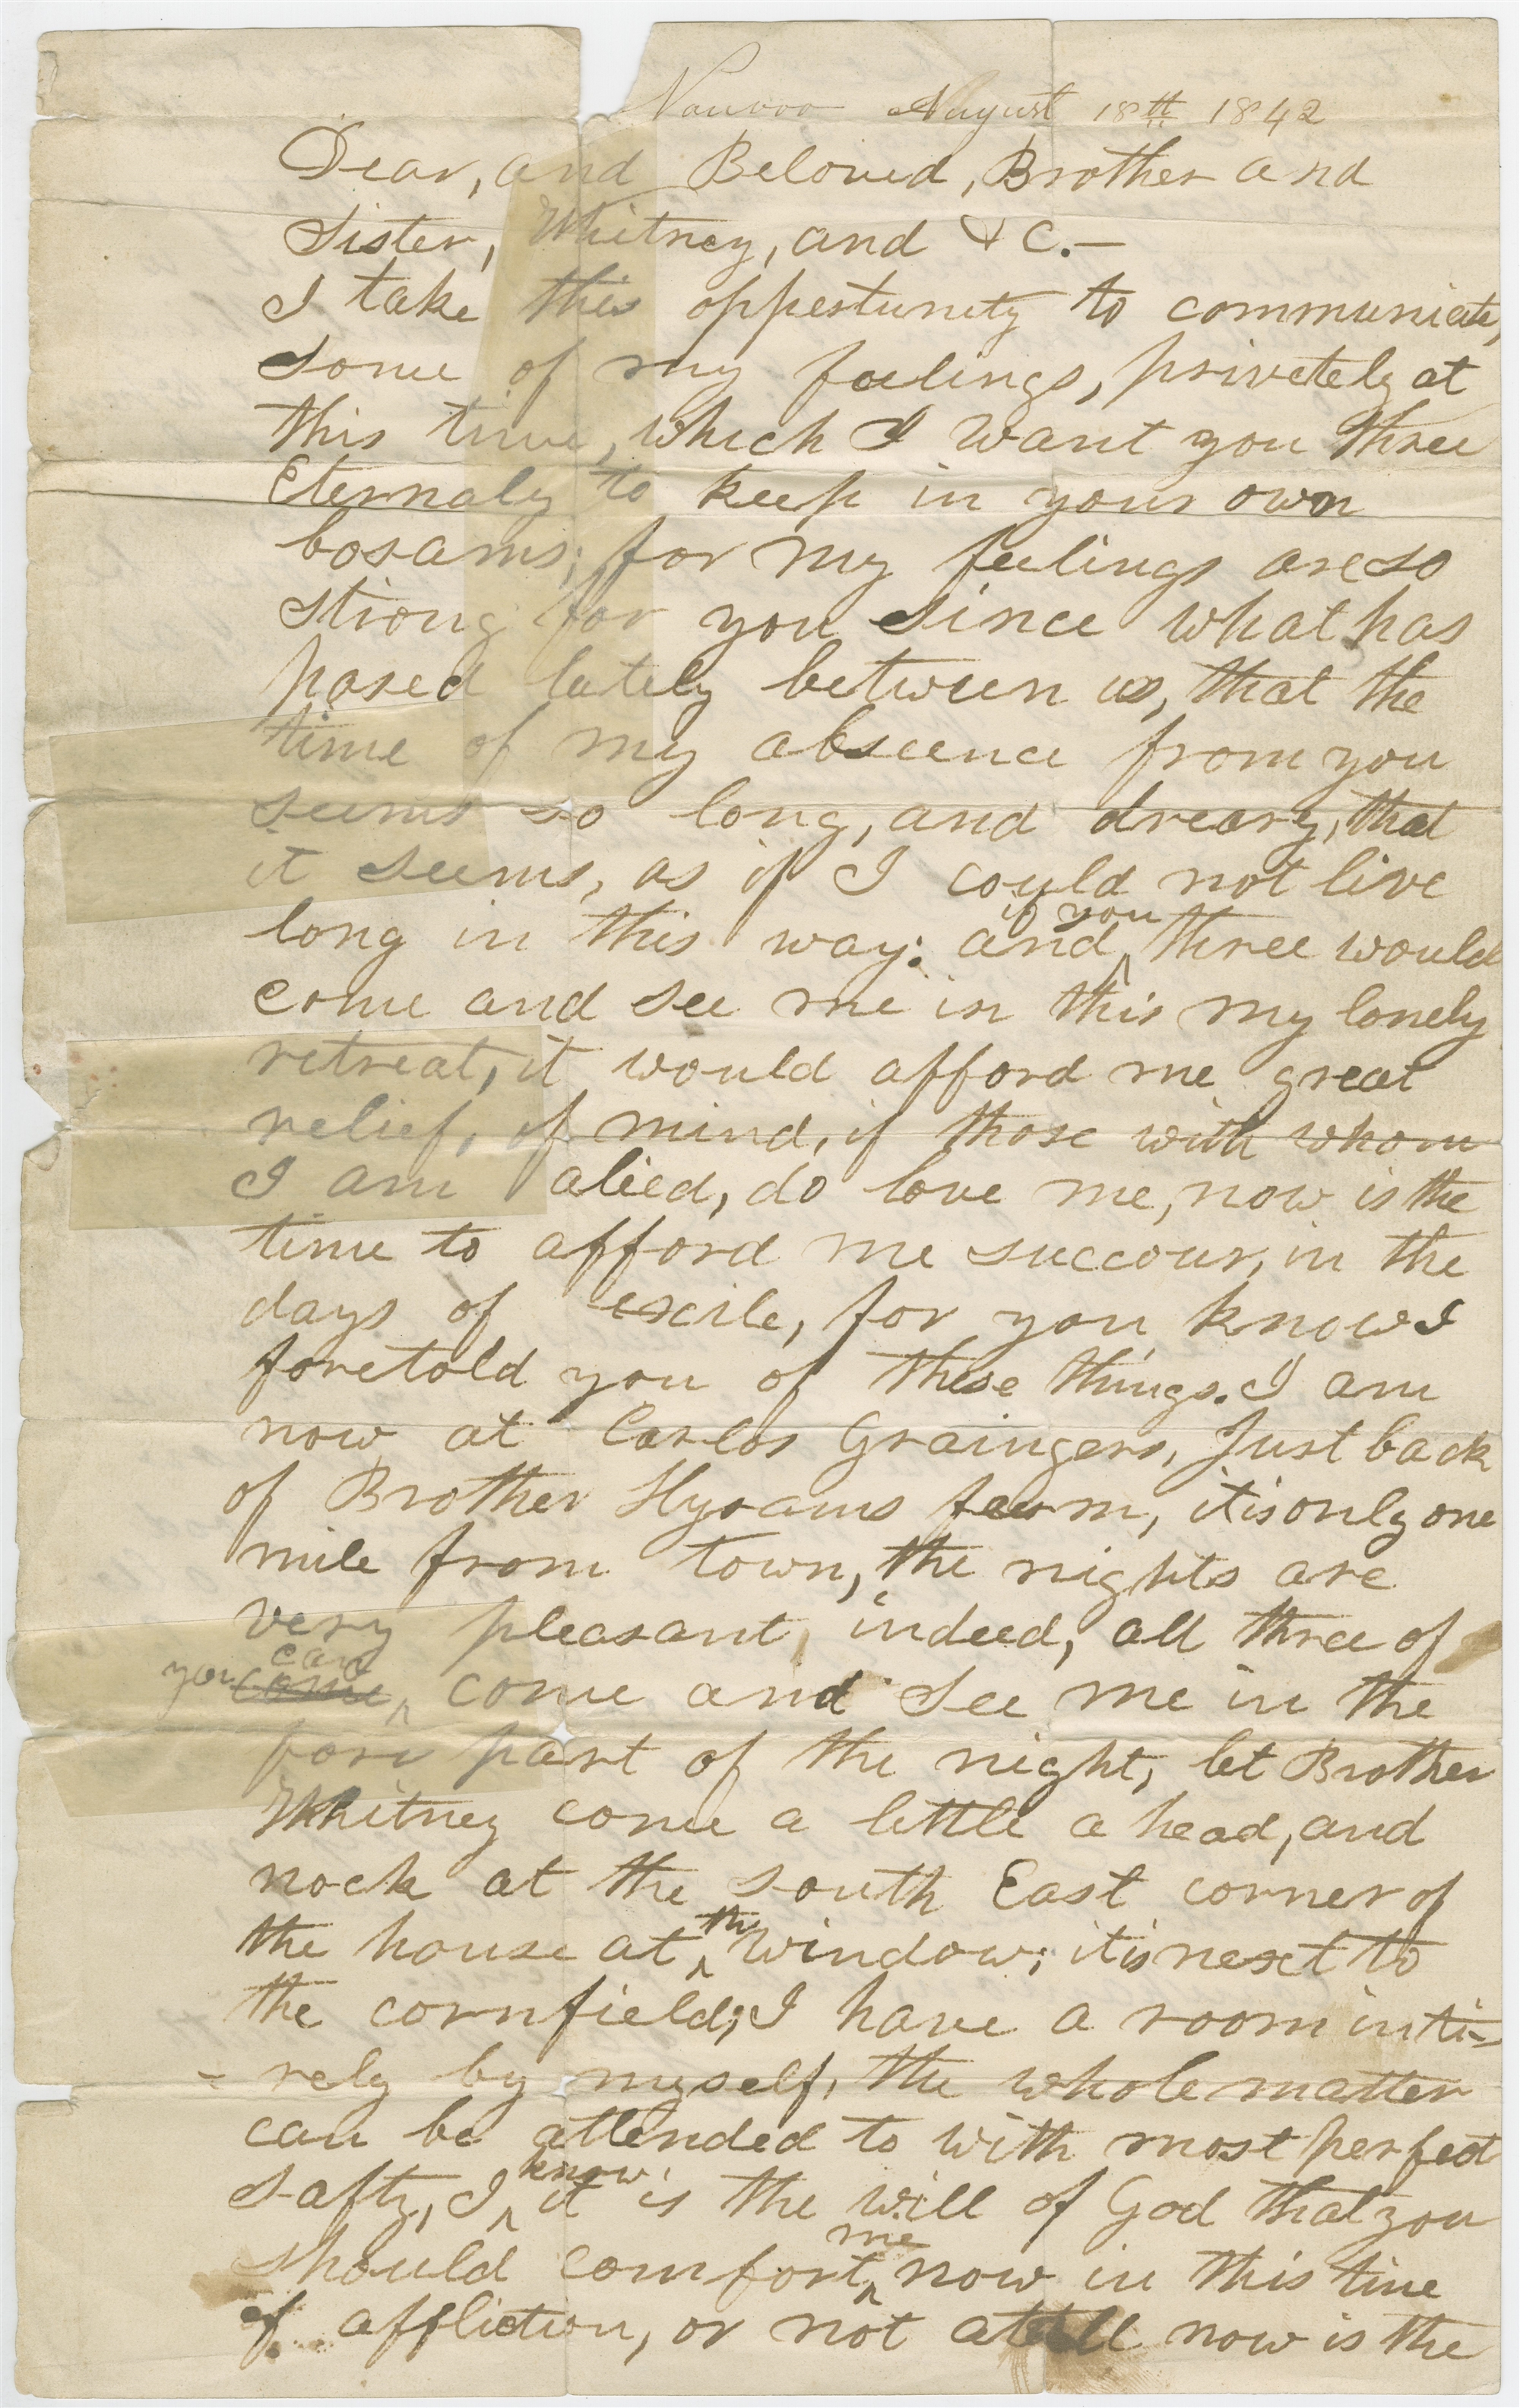 Nauvoo August 18th 1842
Dear, and Beloved, Brother and
Sister, Whitney, and &c.—
I take this oppertunity to communicate,
some of my feelings, privetely at
this time, which I want you three
Eternaly to keep in your own
bosams; for my feelings are so
strong for you since what has
pased lately between us, that the
time of my abscence from you
seems so long, and dreary, that
it seems, as if I could not live
long in this way: and if you three would
come and see me in this my lonely
retreat, it would afford me great
relief, of mind, if those with whom
I am alied, do love me, now is the
time to afford me succour, in the
days of exile, for you know I
foretold you of these things. I am
now at Carlos Graingers, Just back
of Brother Hyrams farm, it is only one
mile from town, the nights are
very pleasant, indeed, all three of
you come can come and see me in the
fore part of the night, let Brother
Whitney come a little a head, and
nock at the south East corner of
the house at the window; it is next to
the cornfield; I have a room inti=
=rely by myself, the whole matter
can be attended to with most perfect
safty, I know it is the will of God that you
should comfort me now in this time
of affliction, or not at all now is the